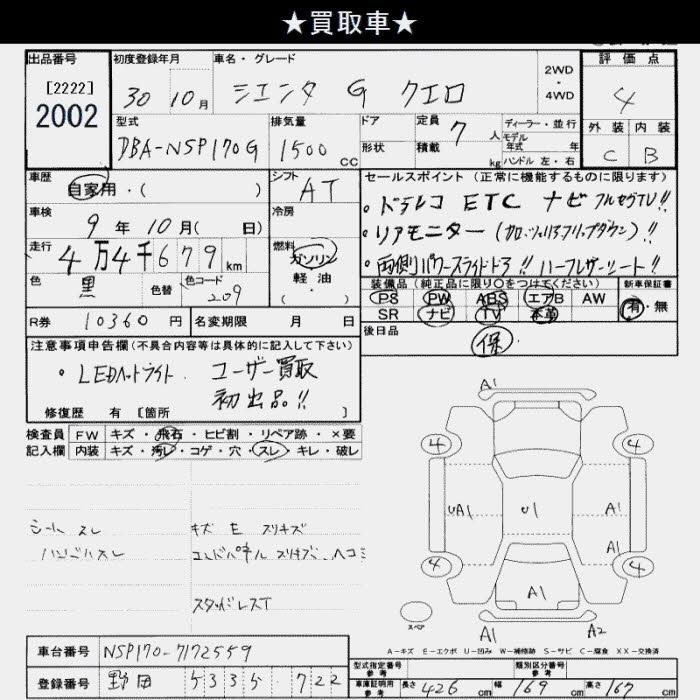 ★買取車★
出品番号
[2222]
2002
初度登録年月
30 10月
車名・グレード
シエンタ G クエロ
2WD
・
4WD
評価点
4
外装 内装
C B
型式
DBA-NSP170G
排気量
1500 CC
ドア
形状
定員 7 人
積載 kg
ディーラー・並行
モデル
年式 年
ハンドル 左・右
車歴
自家用・( )
シフト
AT
車検
9年10月( 日)
冷房
走行
4万4千679km
燃料
ガソリン
軽油
・( )
色
黒
色替
色コード
209
R券 10360 円
名変期限 月 日
セールスポイント(正常に機能するものに限ります)
・ドラレコ ETC ナビ フルセグTV!!
・リアモニター(カロッツェリアフリップダウン)!!
・両側パワースライドドア!! ハーフレザーシート!!
装備品(純正品に限り○をつけてください)
PS PW ABS エアB AW
SR ナビ TV 本革
新車保証書
有・無
後日品
保
注意事項申告欄(不具合内容等は具体的に記入して下さい)
・LEDヘットライト. ユーザー買取
初出品!!
修復歴 有 [箇所 ]
検査員 FW キズ・飛石・ヒビ割・リペア跡・×要
記入欄 内装 キズ・汚レ・コゲ・穴・スレ・キレ・破レ
シートスレ
ハンドルスレ
キズ E スリキズ
コンドパネル スリキズ、ヘコミ
スタッドレスT
A1
4 4
UA1 U1 A1
A1
4 4
A1
スペア
A1 A2
A-キズ E-エクボ U-凹み W-補修跡 S-サビ C-腐食 XX-交換済
車台番号 NSP170-7172559
登録番号 野田 5335 722
型式指定番号
参考
類別区分番号
参考
車庫証明用
参考
長さ 426 cm 幅 169 cm 高さ 167 cm